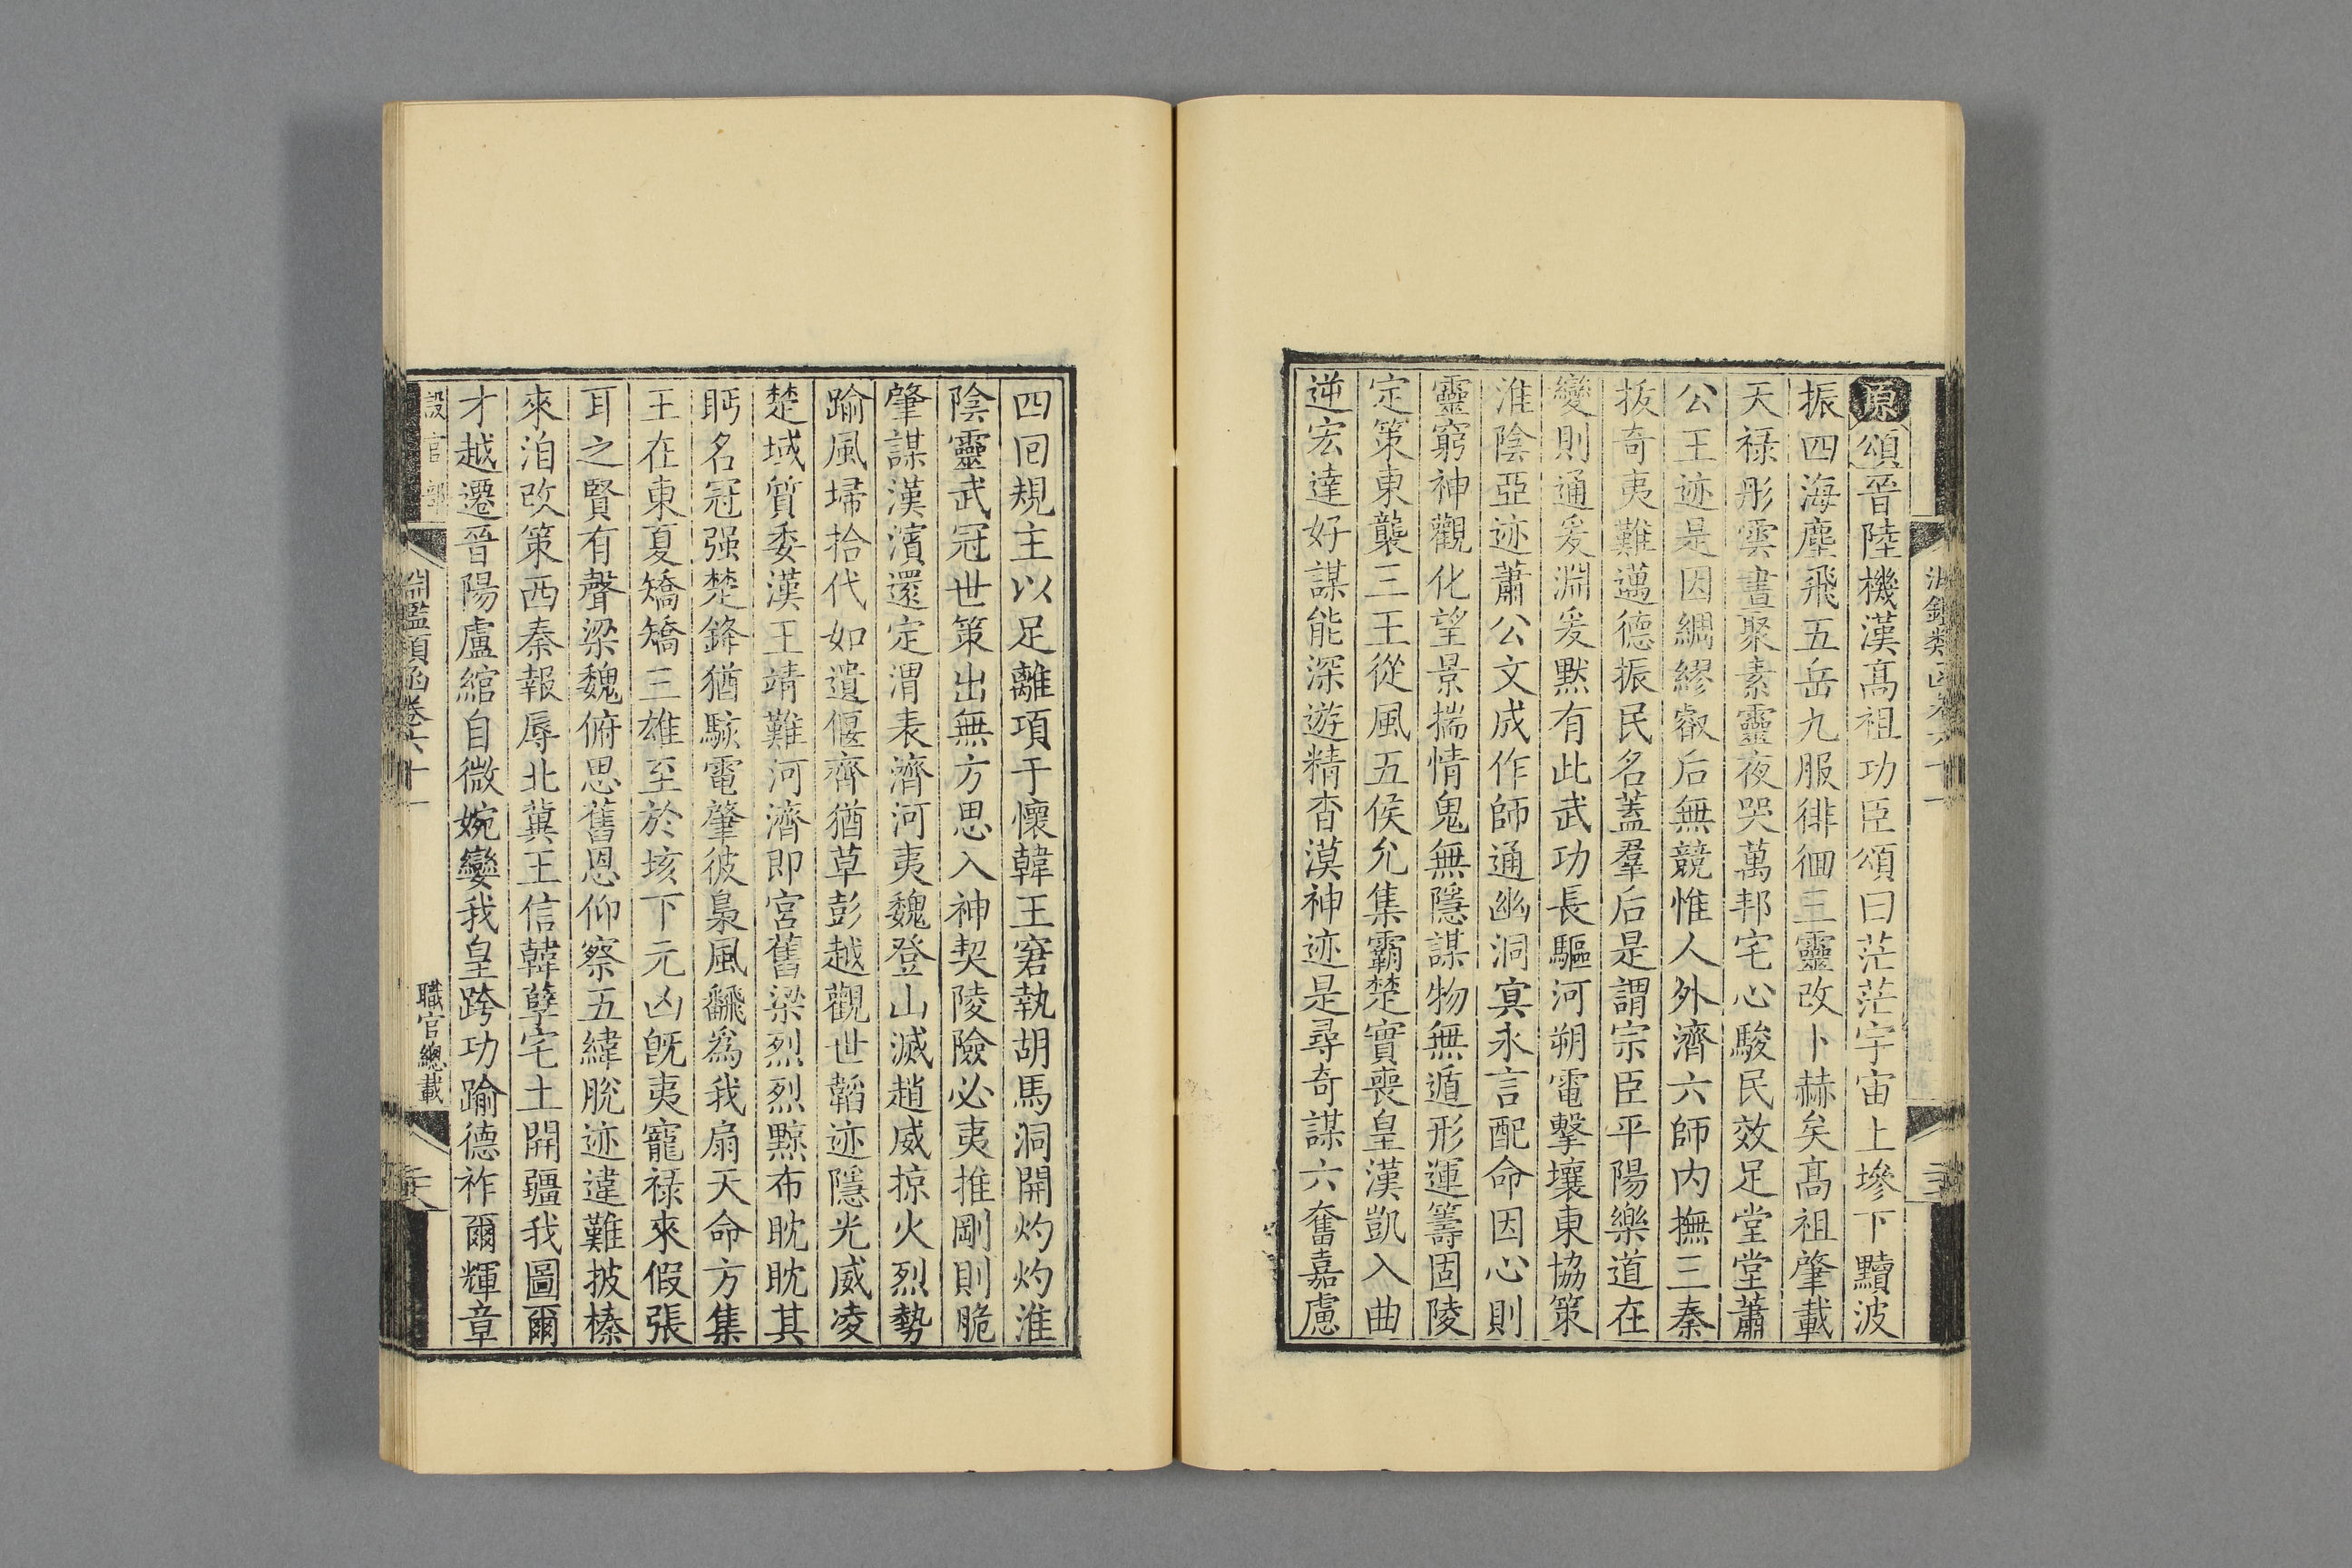 原頌晉陸機漢高祖功臣頌曰茫茫宇宙上墋下黷波
振四海塵飛五岳九服徘徊三靈改卜赫矣髙祖肇載
天祿彤雲晝聚素靈夜哭萬邦宅心駿民效足堂堂蕭
公王迹是因綢繆叡后無競惟人外濟六師内撫三秦
拔奇夷難邁德振民名蓋羣后是謂宗臣平陽樂道在
變則通爰淵爰黙有此武功長驅河朔電擊壤東協策
淮陰亞迹蕭公文成作師通幽洞冥永言配命因心則
靈窮神觀化望景揣情鬼無隱謀物無遁形運籌固陵
定策東襲三王從風五侯允集霸楚實喪皇漢凱入曲
逆宏達好謀能深遊精杳漠神迹是尋奇謀六奮嘉慮
四回規主以足離項于懷韓王窘執胡馬洞開灼灼淮
陰靈武冠世策出無方思入神契陵險必夷推剛則脆
肇謀漢濱還定渭表濟河夷魏登山滅趙威掠火烈勢
踰風埽拾代如遺偃齊猶草彭越觀世韜迹隱光威凌
楚域質委漢王靖難河濟即宮舊梁烈烈黥布耽耽其
眄名冠强楚鋒猶駭電肇彼梟風飜為我扇天命方集
王在東夏矯矯三雄至於垓下元凶旣夷寵祿來假張
耳之賢有聲梁魏俯思舊恩仰察五緯脫迹違難披榛
來洎改策西秦報辱北冀王信韓孽宅土開疆我圖爾
才越遷晉陽盧綰自微婉孌我皇跨功踰德祚爾輝章
設官部
淵鑑類函卷六十一
職官總載